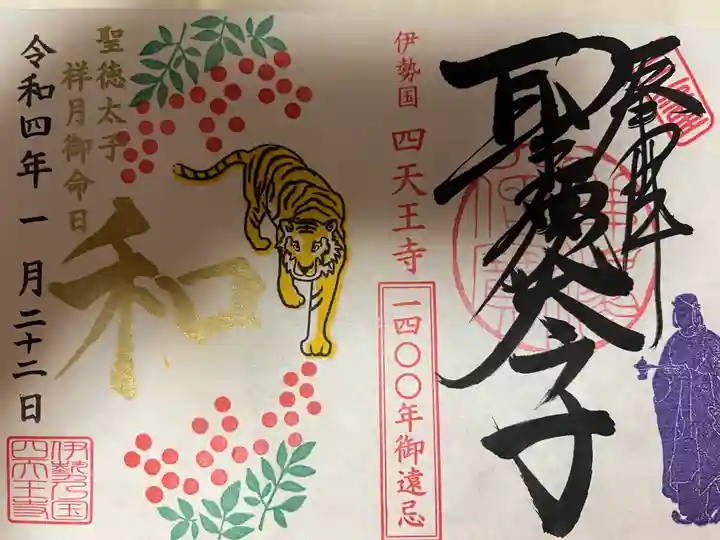 奉拝
聖徳太子
伊勢国 四天王寺
一四〇〇年御遠忌
聖徳太子
祥月御命日
和
令和四年一月二十二日
伊勢乃国
四天王寺